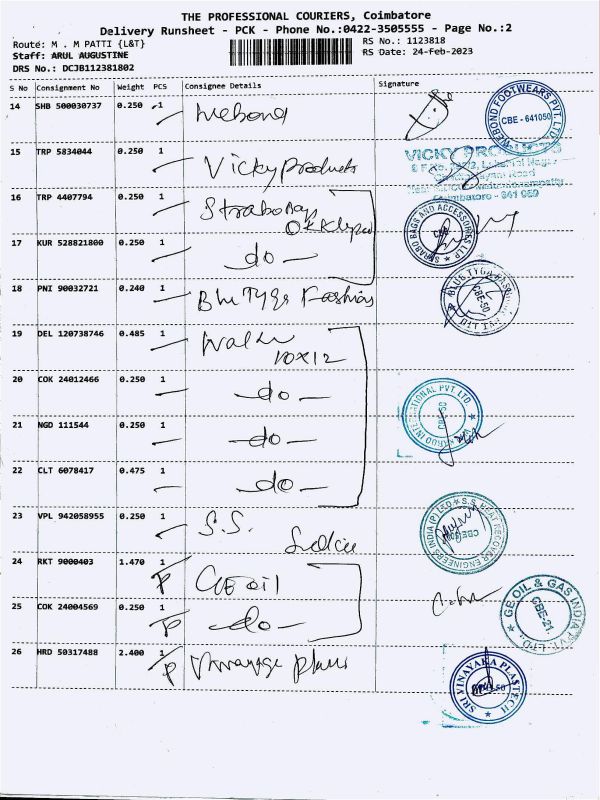 THE PROFESSIONAL COURIERS, Coimbatore
Delivery Runsheet - PCK - Phone No.:0422-3505555 - Page No.:2
Route: M . M PATTI {L&T}
RS No.: 1123818
Staff: ARUL AUGUSTINE
RS Date: 24-Feb-2023
DRS No.: DCJB112381802
S No Consignment No Weight PCS Consignee Details Signature
14 SHB 500030737 0.250 1 Webond
WEBOND FOOTWEARS PVT. LTD. CBE - 641050
15 TRP 5834044 0.250 1 Vicky Products
VICKY PRODUCTS
Coimbatore - 641 050
16 TRP 4407794 0.250 1 Strabo Bags
STRABO BAGS AND ACCESSORIES LLP
17 KUR 528821800 0.250 1 - do -
18 PNI 90032721 0.240 1 Blu Tyga Fashions
BLUE TYGA CBE-50
19 DEL 120738746 0.485 1
10x12
20 COK 24012466 0.250 1 - do -
21 NGD 111544 0.250 1 - do -
INTERNATIONAL PVT LTD. CBE-50
22 CLT 6078417 0.475 1 - do -
23 VPL 942058955 0.250 1 S.S.
S.S. HEAT RECOVER ENGINEERS INDIA (P) LTD
24 RKT 9000403 1.470 1 GE oil
25 COK 24004569 0.250 1 - do -
GE OIL & GAS INDIA PVT. LTD. CBE-21
26 HRD 50317488 2.400 1
SRI VINAYAKA PLASTECH